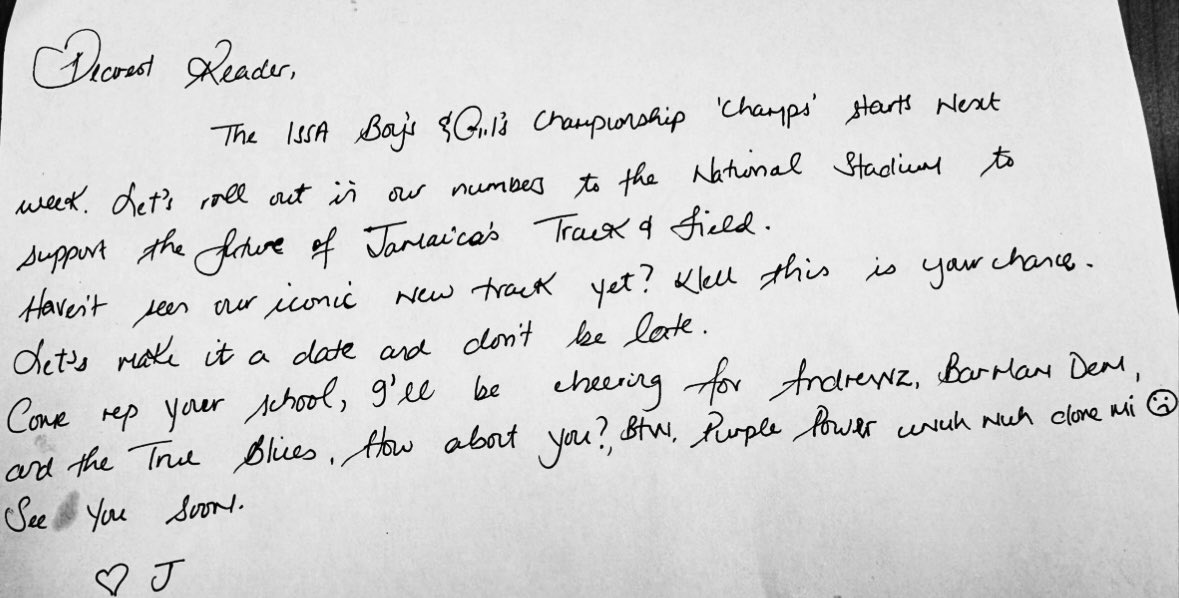 Dearest Reader,
The ISSA Boy's & Girl's Championship 'Champs' starts Next
week. Let's roll out in our numbers to the National Stadium to
support the future of Jamaica's Track & field.
Haven't seen our iconic New track yet? Well this is your chance.
Let's make it a date and don't be late.
Come rep your school, I'll be cheering for Andrewz, BarMan Dem,
and the True Blues. How about you? Btw, Purple Power unuh nuh done mi ☹
See You Soon.
♡ J